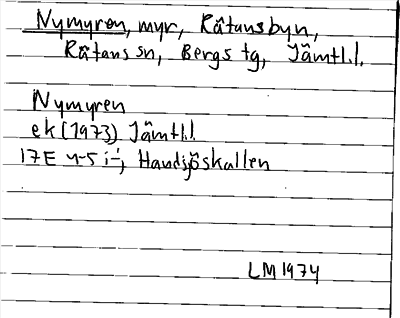 Nymyren, myr, Råtansbyn,
Råtans sn, Bergs tg, Jämtl.l.
Nymyren
ek (1973) Jämtl.l.
17E 4-5 i-j, Handsjöskallen
LM 1974